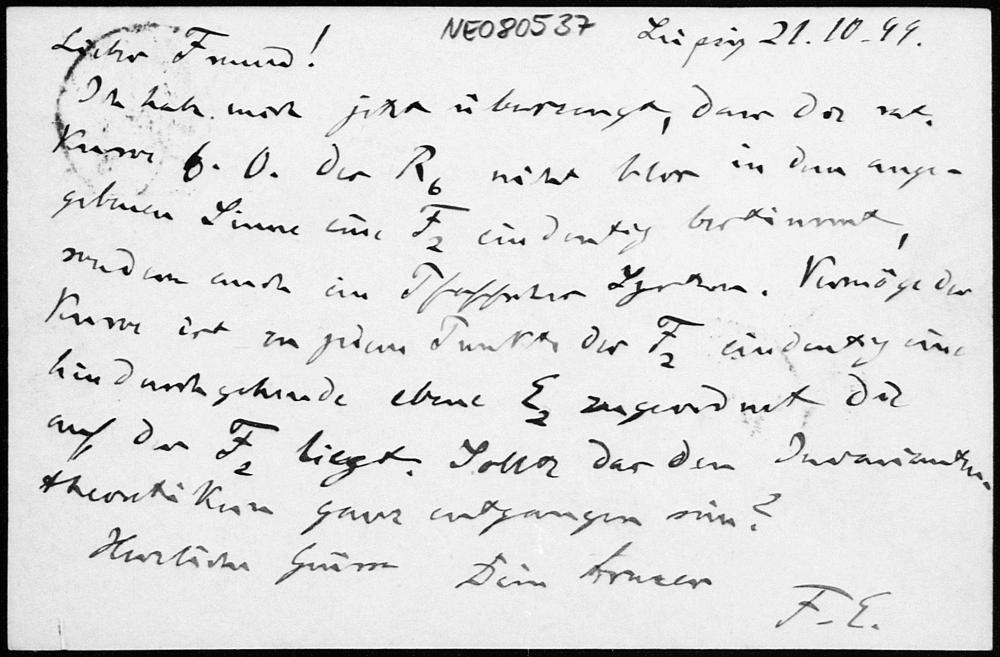 NEO80537
Leipzig 21.10.99.
Lieber Freund!
Ich habe mich jetzt überzeugt, dass die rat.
Kurve 6. O. des R₆ nicht blos in dem ange-
gebenen Sinne eine F₂ eindeutig bestimmt,
sondern auch ein Pfaffsches System. Vermöge der
Kurve ist zu jedem Punkte der F₂ eindeutig eine
hindurchgehende ebene E₂ zugeordnet die
auf der F₂ liegt. Sollte das den Invarianten-
theoretikern ganz entgangen sein?
Herzliche Grüsse Dein
F.E.